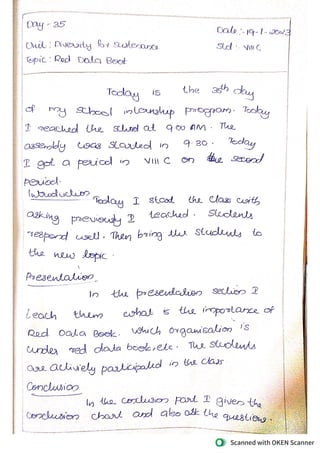 Day - 35
Date :- 19-1-2023
Unit : Diversity for Sustenance
Std :- VIII C
Topic : Red Data Book
Today is the 35th day
of my school internship program. Today
I reached the school at 9.00 AM. The
assembly was started in 9.30. Today
I got a period in VIII C on the second
period.
Introduction
Today I start the class with
asking previously I teached. Students
respond well. Then bring the students to
the new topic.
Presentation
In the presentation section I
teach them what is the importance of
Red Data Book. Which organisation is
under red data book, etc. The students
are actively participated in the class
Conclusion
In the conclusion part I given the
conclusion chart and also ask the questions.
Scanned with OKEN Scanner